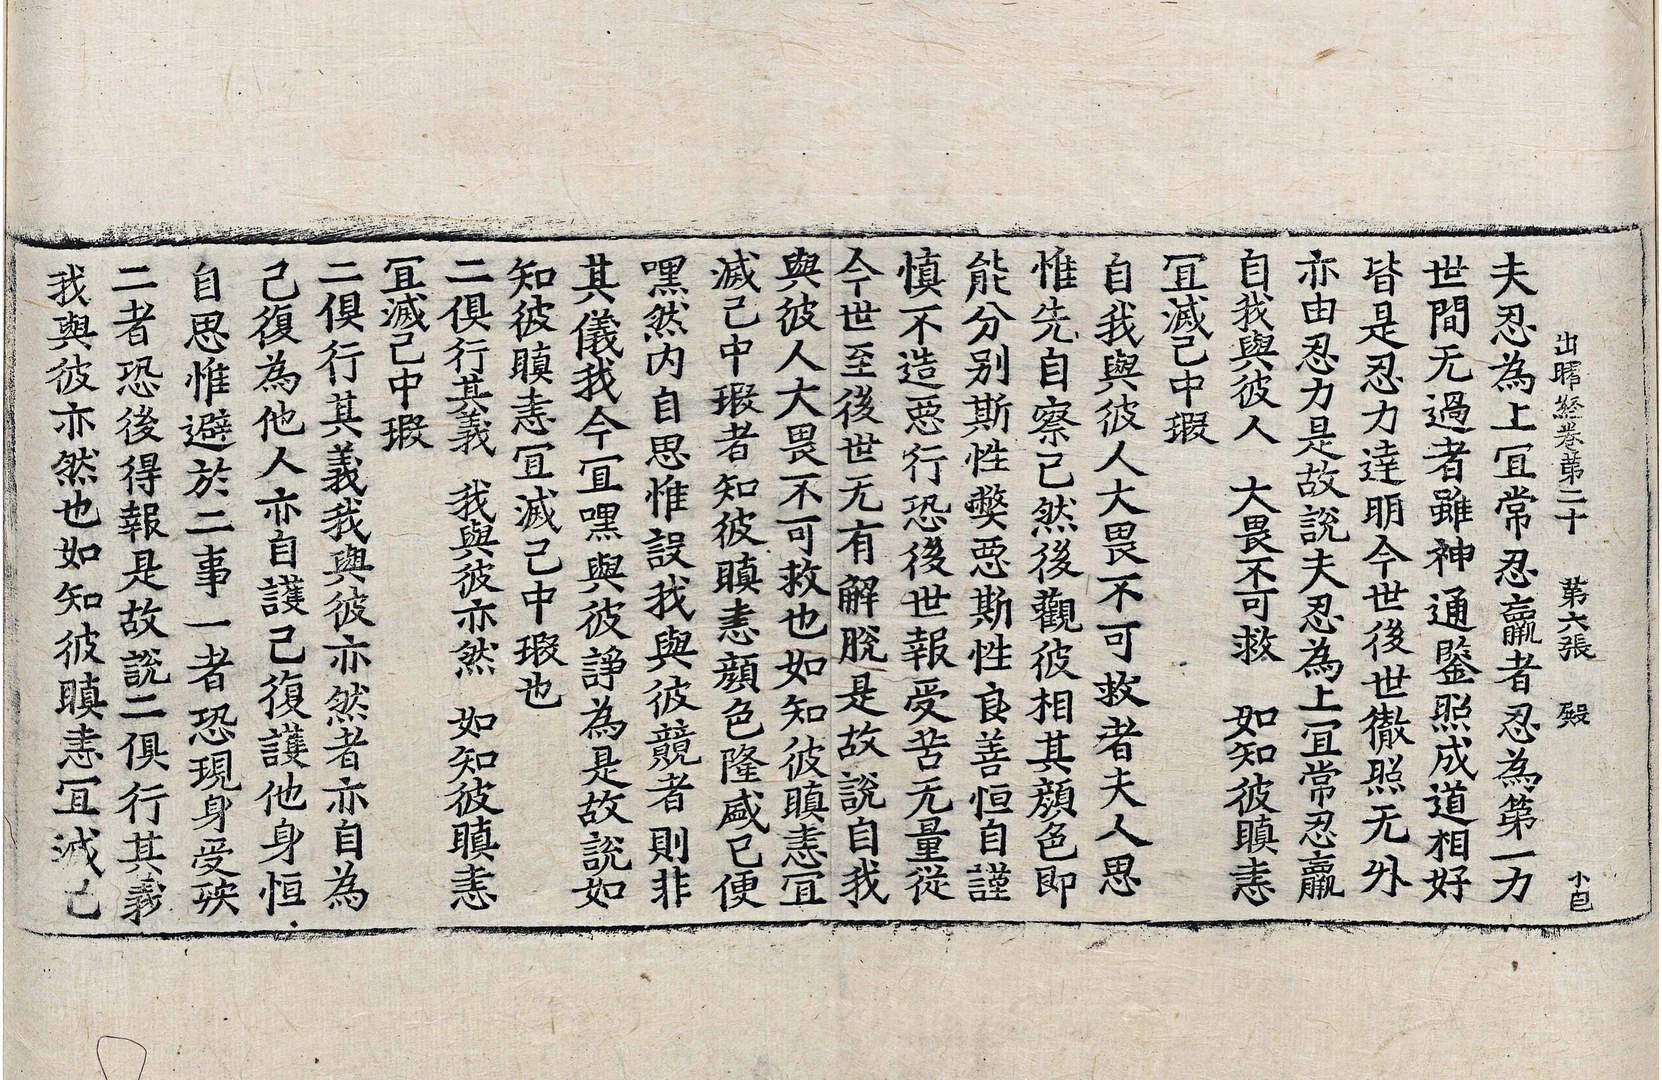 出曜経卷第二十 第六張 殿 小皀
夫忍為上冝常忍羸者忍為第一力
世間无過者雖神通鑒照成道相好
皆是忍力達明今世後世徹照无外
亦由忍力是故說夫忍為上冝常忍羸
自我與彼人 大畏不可救 如知彼瞋恚
冝滅己中瑕
自我與彼人大畏不可救者夫人思
惟先自察己然後觀彼相其顔色即
能分别斯性弊惡斯性良善恒自謹
慎不造惡行恐後世報受苦无量從
今世至後世无有解脫是故說自我
與彼人大畏不可救也如知彼瞋恚冝
滅己中瑕者知彼瞋恚顔色隆盛己便
嘿然内自思惟設我與彼競者則非
其儀我今冝嘿與彼諍為是故說如
知彼瞋恚冝滅己中瑕也
二俱行其義 我與彼亦然 如知彼瞋恚
冝滅己中瑕
二俱行其義我與彼亦然者亦自為
己復為他人亦自護己復護他身恒
自思惟避於二事一者恐現身受殃
二者恐後得報是故說二俱行其義
我與彼亦然也如知彼瞋恚冝滅己